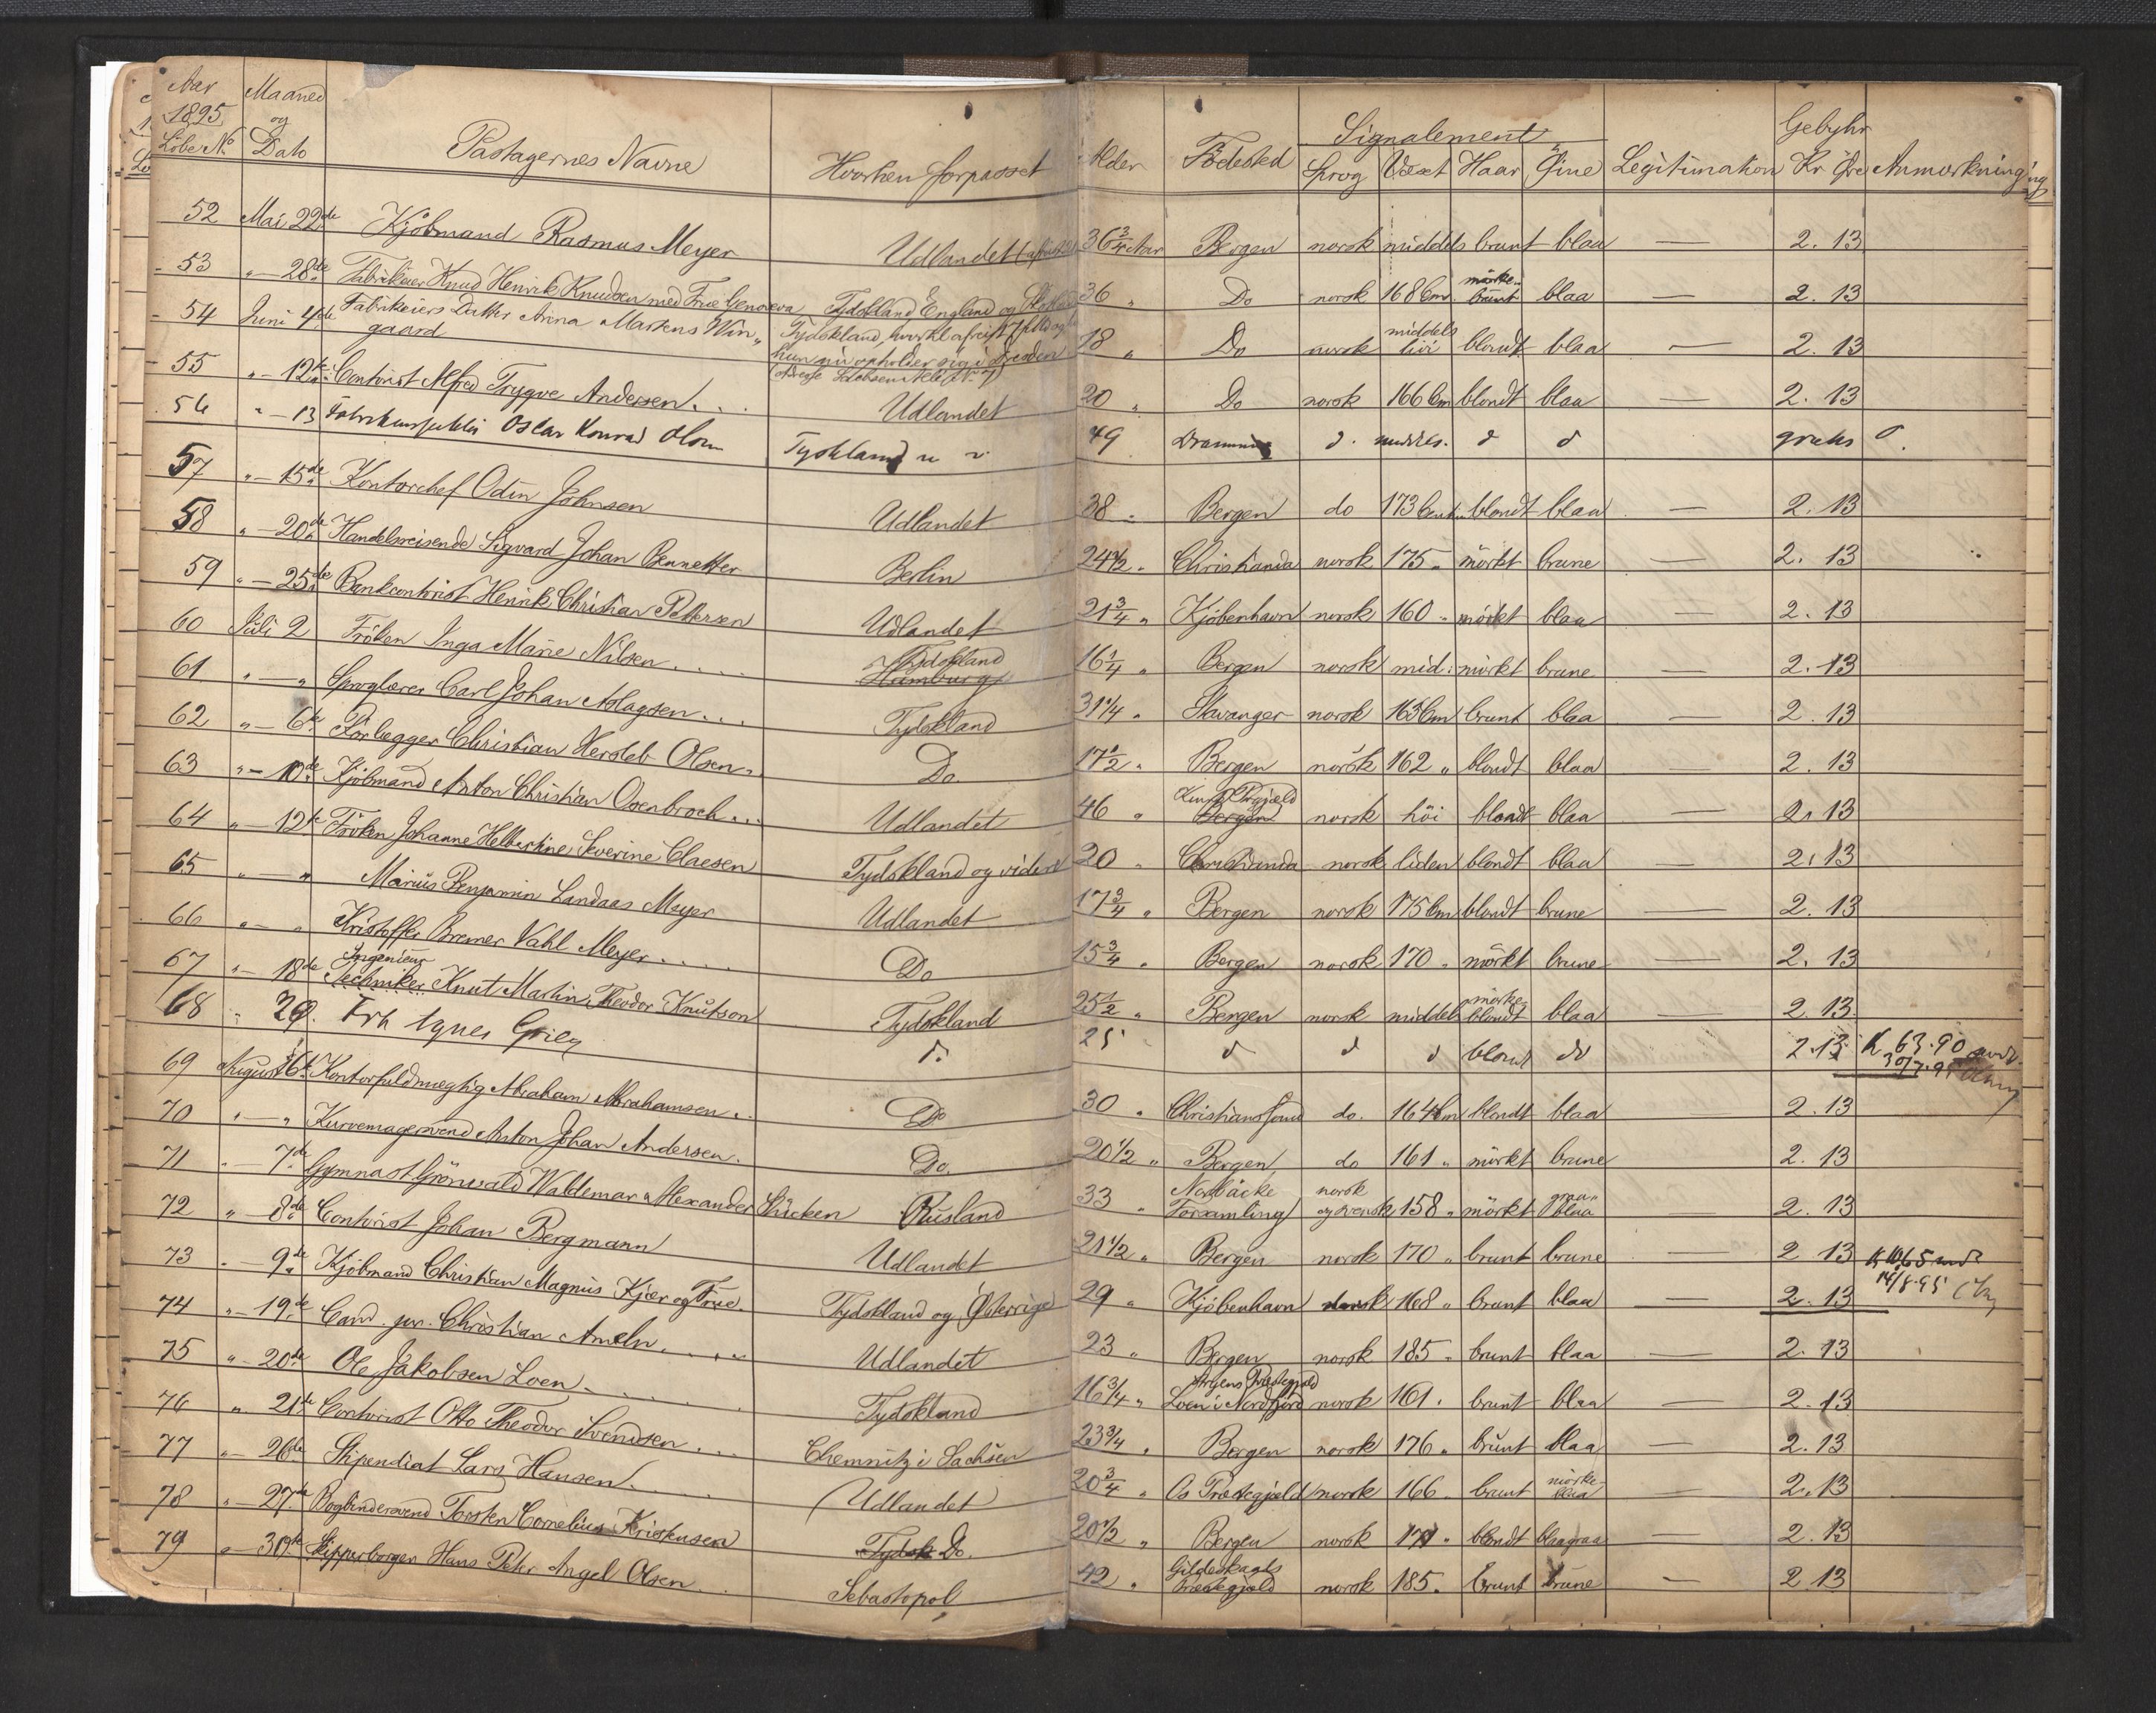 Aar 1895 Maaned og Dato
Løbe No Pastagernes Navne Hvorhen forpasset Alder Fødested Signalement Sprog Væxt Haar Øine Legitimation Gebyhr Kr Øre Anmærkning
52 Mai 22de Kjøbmand Rasmus Meyer Udlandet 36 3/4 Aar Bergen norsk middels brunt blaa — 2. 13
53 " — 28de Fabrikeier Knud Henrik Knudsen med Frue Genoveva Tydskland England og 36 " Do norsk 168 Cm mörke-brunt blaa — 2. 13
54 Juni 4de Fabrikeiers Datter Anna Martens Win„gaard Tydskland, hun nu opholder sig i Dresden 18 " Do norsk middels höi blondt blaa — 2. 13
55 " — 12te Contorist Alfred Trygve Andersen . . . Udlandet 20 " Do norsk 166 Cm blondt blaa — 2. 13
56 " — 13 Oscar Konrad Tyskland 49 d. d d gratis
57 " — 15de Kontorchef Odin Johnsen Udlandet 38 " Bergen do 173 blondt blaa — 2. 13
58 " — 20de Handelsreisende Sigvard Johan Bennetter Berlin 24 1/2 " Christiania norsk 175 " mörkt brune — 2. 13
59 " — 25de Bankcontorist Henrik Christian Pettersen Udlandet 21 3/4 " Kjöbenhavn norsk 160 " mörkt blaa — 2. 13
60 Juli 2 Fröken Inga Marie Nilsen . . . . Tydskland Hamburg 16 1/4 " Bergen norsk mid: mörkt brune — 2. 13
61 " — " Sproglærer Carl Johan Aslagsen . . . Tydskland 31 1/4 " Stavanger norsk 163 Cm brunt blaa — 2. 13
62 " — 6te Forlægger Christian Hersleb Olsen . Do 17 1/2 " Bergen norsk 162 " blondt blaa — 2. 13
63 " — 10de Kjöbmand Anton Christian Osenbroch . . . Udlandet 46 " Bergen norsk höi blondt blaa — 2. 13
64 " — 12te Fröken Johanne Helbertine Severine Claesen Tydskland og videre 20 " Christiania norsk liden blondt blaa — 2. 13
65 " — " Marius Benjamin Landaas Meyer Udlandet 17 3/4 " Bergen norsk 175 Cm blondt brune — 2. 13
66 " — " Kristoffer Bremer Vahl Meyer . . . . Do 15 3/4 " Bergen norsk 170 " mörkt brune — 2. 13
67 " — 18de Ingenieur Techniker Knut Martin Theodor Knutson Tydskland 25 1/2 " Bergen norsk middel mörke-blondt blaa — 2. 13
68 " 29. Frk Agnes Grieg d. 25 d d d blond do 2.13 K 63.90 30/7.95
69 August 6te Kontorfuldmægtig Abraham Abrahamsen . . Do 30 " Christianssund do. 164 Cm blondt blaa 2. 13
70 " — " Kurvemagersvend Anton Johan Andersen . Do. 20 1/2 " Bergen do 161 " mörkt brune 2. 13
71 " — 7de Gymnast Grönwald Waldemar Alexander Stücken Rusland 33 " Norrbäcke Forsamling norsk og svensk 158 " mörkt graa-blaa — 2. 13
72 " — 8de Contorist Johan Bergmann Udlandet 21 1/2 " Bergen norsk 170 " brunt brune — 2 13
73 " — 9de Kjöbmand Christian Magnus Kjær og Frue Tydskland og Österrige 29 " Kjöbenhavn dansk 168 " brunt blaa — 2. 13 14/8.95
74 " — 19de Cand. jur. Christian Ameln . . . . Udlandet 23 " Bergen norsk 185 " brunt blaa — 2. 13
75 " — 20de Ole Jakobsen Loen . . . . Tydskland 16 3/4 " Stryens Præstegjæld Loen i Nordfjord norsk 161 . brunt blaa — 2. 13
76 " 21de Contorist Otto Theodor Svendsen . . . Chemnitz i Sachsen 23 3/4 " Bergen norsk 176 " brunt blaa — 2. 13
77 " — 26de Stipendiat Lars Hansen . . . . Udlandet 20 3/4 " Os Præstegjæld norsk 166 brunt mörke-blaa — 2. 13
78 " — 27de Bogbindersvend Torsten Cornelius Kristensen Tydsk Do. 20 1/2 " Bergen norsk 171 " blondt blaagraa — 2. 13
79 " — 30te Skipperborger Hans Peter Angel Olsen . . Sebastopol 42 " Gildeskaals Præstegjæld norsk 185 . brunt brune — 2 13